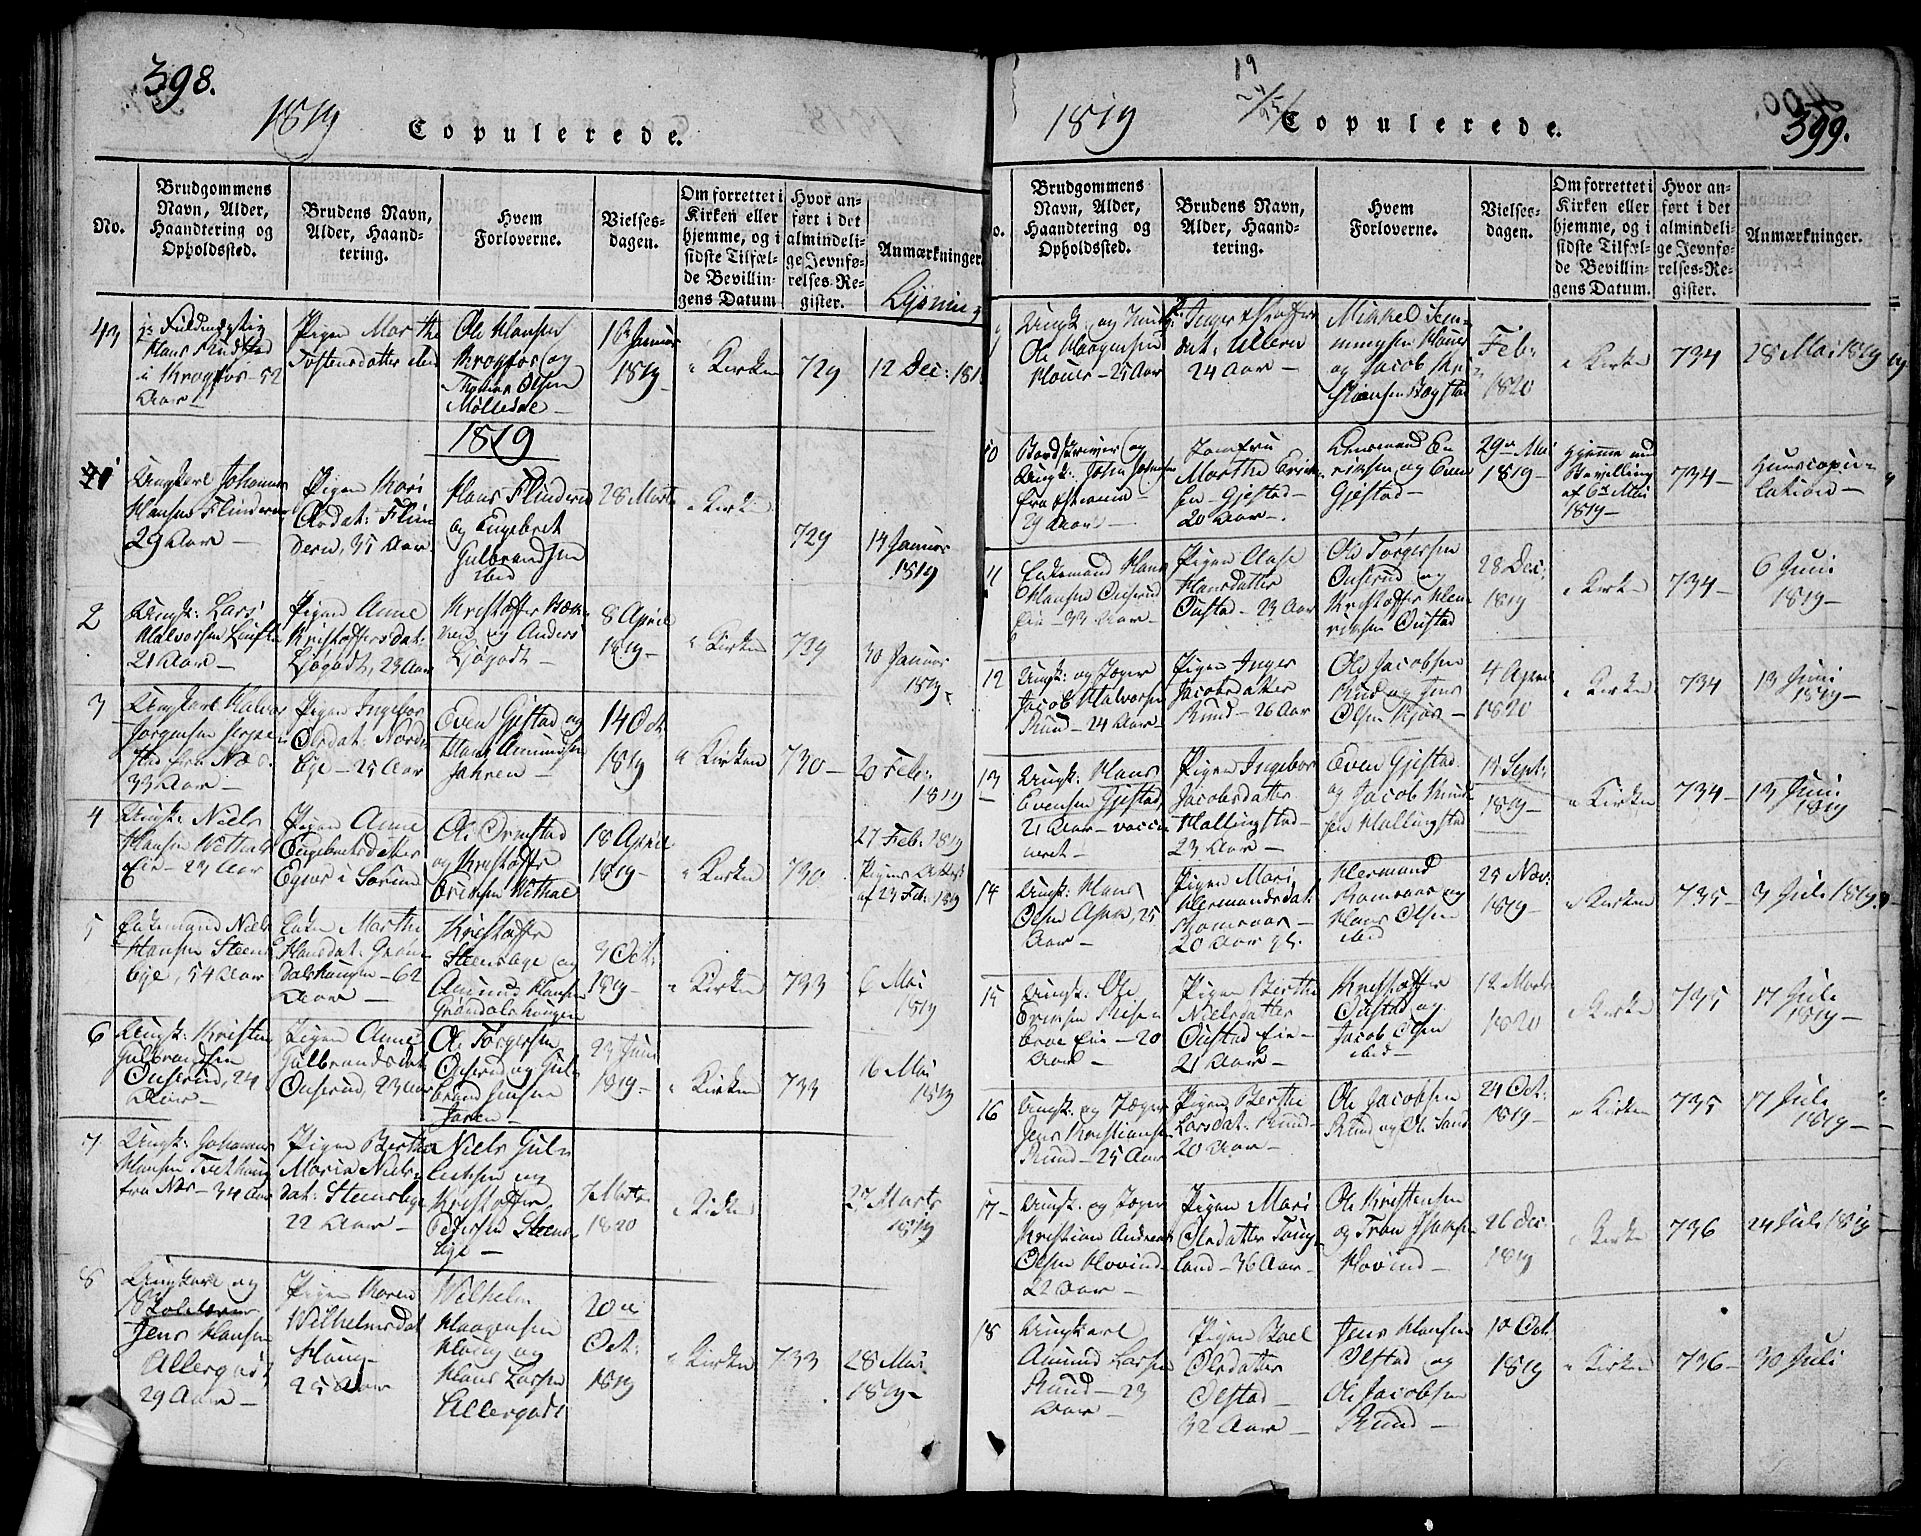 398.
1819
Copulerede.
No.
Brudgommens
Navn, Alder,
Haandtering og
Opholdssted.
Brudens Navn,
Alder, Haand-
tering.
Hvem
Forloverne.
Vielses-
dagen.
Om forrettet i
Kirken eller
hjemme, og i
sidste Tilfæl-
de Bevillin-
gens Datum
Hvor an-
ført i det
almindeli-
ge Jevnfø-
relses-Re-
gister.
Anmærkninger.
43
i Krogfos - 52
Aar -
Pigen Marthe
Tostensdatter
Ole Hansen
Krogfos og
Olsen
1819 -
Kirken
729
12 Dec: 181
1819
1
Ungkarl Johannes
Hansen Flinderen
29 Aar -
Pigen Kari
Olsdat: Flin
deren, 35 Aar
Hans Flinderen
og Engebret
Gulbrandsen
ibid
28 Marts
Kirke
729
14 Januar
1819
2
Ungk: Lars
Halvorsen
21 Aar -
Pigen Anne
Kristoffersdat:
Ljøgodt, 23 Aar
Kristoffer
og Anders
Ljøgodt -
8 April
1819 -
Kirken
729
30 Januar
1819 -
3
Ungkarl
Jorgensen
33 Aar -
Pigen Ingebor
Olsdat: Nordre
bye - 25 Aar
Even Gjestad og
Hans Amundsen
Jahren -
14 Oct
1819
Kirken
730 -
20 Feb:
1819
4
Ungk: Niels
Hansen Wethal
Eie - 23 Aar
Pigen Anne
Engebretsdatter
Ole Ormstad
og Kristoffer
Eriksen Wethal
18 April
1819 -
Kirken
730
27 Feb: 1819
Pigens Attest
af 23 Feb: 1819
5
Enkemand Niels
Hansen Steens
bye, 54 Aar
Enken Marthe
Hansdat: Grøn
dalshaugen - 62
Aar -
Kristoffer
Steensbye og
Amund Hansen
Grøndalshaugen
3 Oct:
1819 -
Kirken
733
6 Mai
1819
6
Ungk: Kristen
Gulbrandsen
Onsrud, 24
Aar -
Pigen Anne
Gulbrandsdat
Onsrud, 23 Aar
Ole Torgersen
Onsrud og Gul
brand Jensen
Jaren -
23 Juni
1819 -
Kirken
733
16 Mai
1819
7
Ungk: Johannes
Hansen
fra Næs - 34 Aar
Pigen Berthe
Maria Niels
dat: Steensbye
22 Aar -
Niels Gul
og
Kristoffer
Pedersen Steens
bye -
7 Marts
1820
Kirke
733
27 Marts
1819
8
Ungkarl og
Jens Hansen
Allergodt
29 Aar -
Pigen Maren
Wilhelmsdat
Haug -
25 Aar
Wilhelm
Haagensen
Haug og
Hans Larsen
Allergodt
20de
Oct:
1819
Kirken
733
28 Mai
1819 -
1819
19
Copulerede.
399.
o.
Brudgommens
Navn, Alder,
Haandtering og
Opholdssted.
Brudens Navn,
Alder, Haand-
tering.
Hvem
Forloverne.
Vielses-
dagen.
Om forrettet i
Kirken eller
hjemme, og i
sidste Tilfæl-
de Bevillin-
gens Datum.
Hvor an-
ført i det
almindeli-
ge Jevnfø-
relses-Re-
gister.
Anmærkninger.
9
Ole Haagensen
Houer - 25 Aar
Inger Kristoffers
dat: Ulleren
24 Aar -
Mikkel Fem-
mingsen Houer
og Jacob Kri
stiansen Bogstad
Feb:
1820
Kirke
734
28 Mai 1819
10
29 Aar -
Jomfru
Marthe Erik
sen - Gjestad -
20 Aar -
Lensmand En
riksen og Even
Gjestad -
29 Mai
1819 -
Hjemme med
Bevilling
af 6te Mai
1819 -
734 -
Huuscopu-
lation -
11
Enkemand Hans
Hansen Onsrud
Eie - 33 Aar -
Pigen Aase
Hansdatter
Onstad - 23 Aar
Ole Torgersen
Onsrud og
Kristoffer Hen
riksen Onstad
28 Dec:
1819
Kirke
734 -
6 Juni
1819 -
12
Ungk: og Jæger
Jacob Halvorsen
Ruud - 24 Aar -
Pigen Inger
Jacobsdatter
Ruud - 26 Aar
Ole Jacobsen
Ruud og Jens
Olsen Kjos -
4 April
1820
Kirke
734
13 Juni
1819 -
13
Ungk: Hans
Evensen Gjestad
21 Aar - vacci
neret -
Pigen Ingebor
Jacobsdatter
Hallingstad -
23 Aar -
Even Gjestad
og Jacob Knud
sen Hallingstad
14 Sept:
1819 -
Kirken
734 -
13 Juni
1819
14
Ungk: Hans
Olsen Ask, 25
Aar -
Pigen Mari
Hermandsdat
Komsaas -
20 Aar
Hermand
Komsaas og
Hans Olsen
ibid
25 Nov:
1819 -
Kirken
735 -
3 Juli 1819
15
Ungk: Ole
Eriksen
Eie - 20
Aar -
Pigen Berthe
Nielsdatter
Onstad Eie -
21 Aar -
Kristoffer
Onstad og
Jacob Olsen
ibid -
12 Marts
1820
Kirke
735
17 Juli
1819 -
16
Ungk: og Jæger
Jens Kristiansen
Ruud - 25 Aar
Pigen Berthe
Larsdat: Ruud -
20 Aar -
Ole Jacobsen
Ruud og Ole Sand
24 Oct:
1819 -
Kirken
735
17 Juli
1819 -
17 -
Ungk: og Jæger
Kristian Andreas
Olsen Hovind
22 Aar -
Pigen Mari
Olsdatter Foug
land - 36 Aar -
Ole Kristensen
og Tron Isaksen
Hovind -
26 Dec:
1819
Kirke
736
24 Juli 1819
18
Ungkarl
Amund Larsen
Ruud - 23
Aar -
Pigen Boel
Olsdatter
Olstad -
32 Aar -
Jens Hansen
Olstad og
Ole Jacobsen
Ruud -
10 Oct:
1819
Kirken
736 -
30 Juli